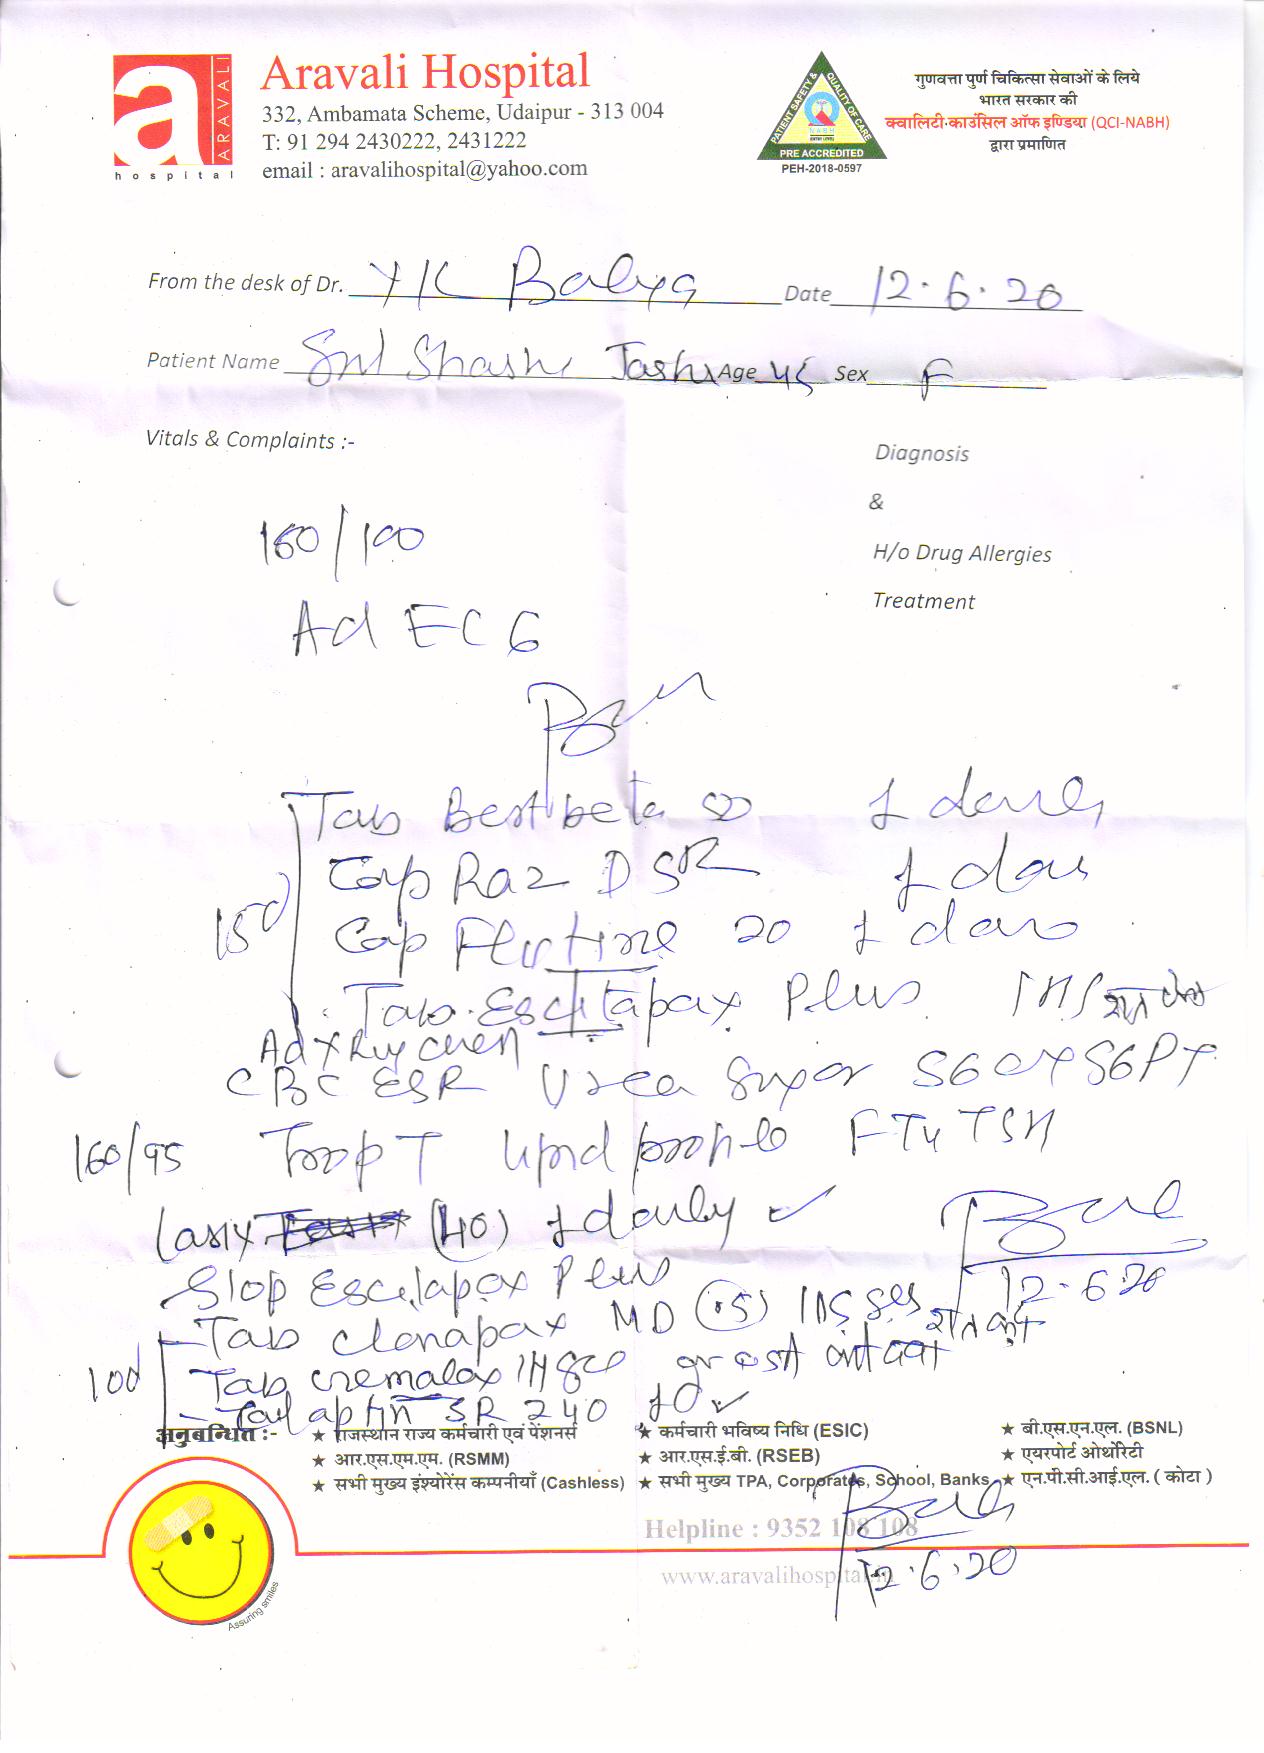 a ARAVALI
hospital
Aravali Hospital
332, Ambamata Scheme, Udaipur - 313 004
T: 91 294 2430222, 2431222
email : aravalihospital@yahoo.com
PATIENT SAFETY & QUALITY OF CARE
NABH
PRE ACCREDITED
PEH-2018-0597
गुणवत्ता पुर्ण चिकित्सा सेवाओं के लिये
भारत सरकार की
क्वालिटी-काउंसिल ऑफ इण्डिया (QCI-NABH)
द्वारा प्रमाणित
From the desk of Dr. Y K Baliya Date 12.6.20
Patient Name Smt Shashi Joshi Age 45 Sex F
Vitals & Complaints :-
Diagnosis
&
H/o Drug Allergies
Treatment
160/100
Ad ECG
Tab Bestbeta 50 1 daily
Cap Raz DSR 1 daily
15d
Cap Flutine 20 1 daily
Tab. Escitapax Plus 1HS
Ad X Ray chest
CBC ESR Urea Sugar SGOT SGPT
160/95 Trop T Lipid profile FT4 TSH
Lasix (40) 1 daily ✓
Stop Escitapax Plus
12.6.20
Tab Clonapax MD (.5)
10d
Tab Cremalax 1H
Calaptin SR 240 1D ✓
अनुबन्धित :-
★ राजस्थान राज्य कर्मचारी एवं पेंशनर्स ★ कर्मचारी भविष्य निधि (ESIC) ★ बी.एस.एन.एल. (BSNL)
★ आर.एस.एम.एम. (RSMM) ★ आर.एस.ई.बी. (RSEB) ★ एयरपोर्ट ओथोरिटी
★ सभी मुख्य इंश्योरेंस कम्पनीयाँ (Cashless) ★ सभी मुख्य TPA, Corporates, School, Banks ★ एन.पी.सी.आई.एल. ( कोटा )
Helpline : 9352 108 108
www.aravalihospital.in
12.6.20
Assuring smiles